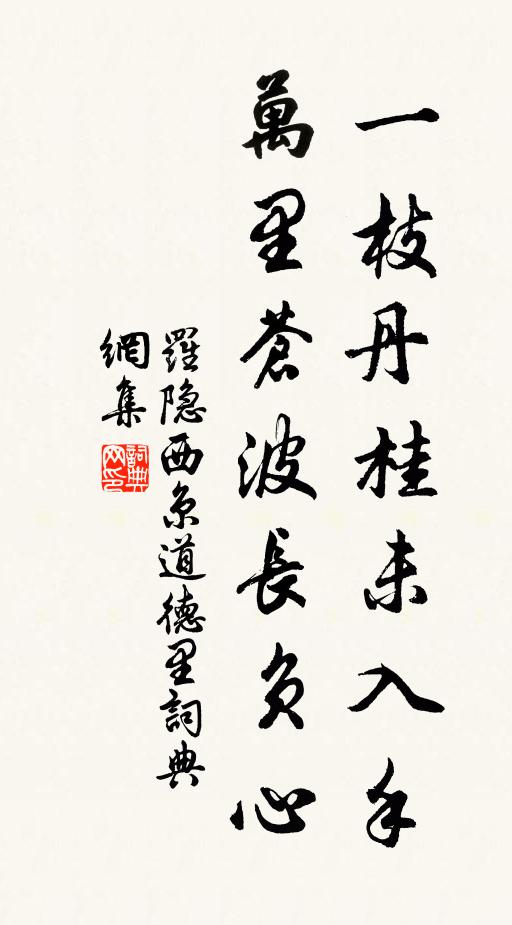 一枝丹桂未入手
萬里蒼波長負心
羅隐西京道德里詞典
網集
詞典
网印